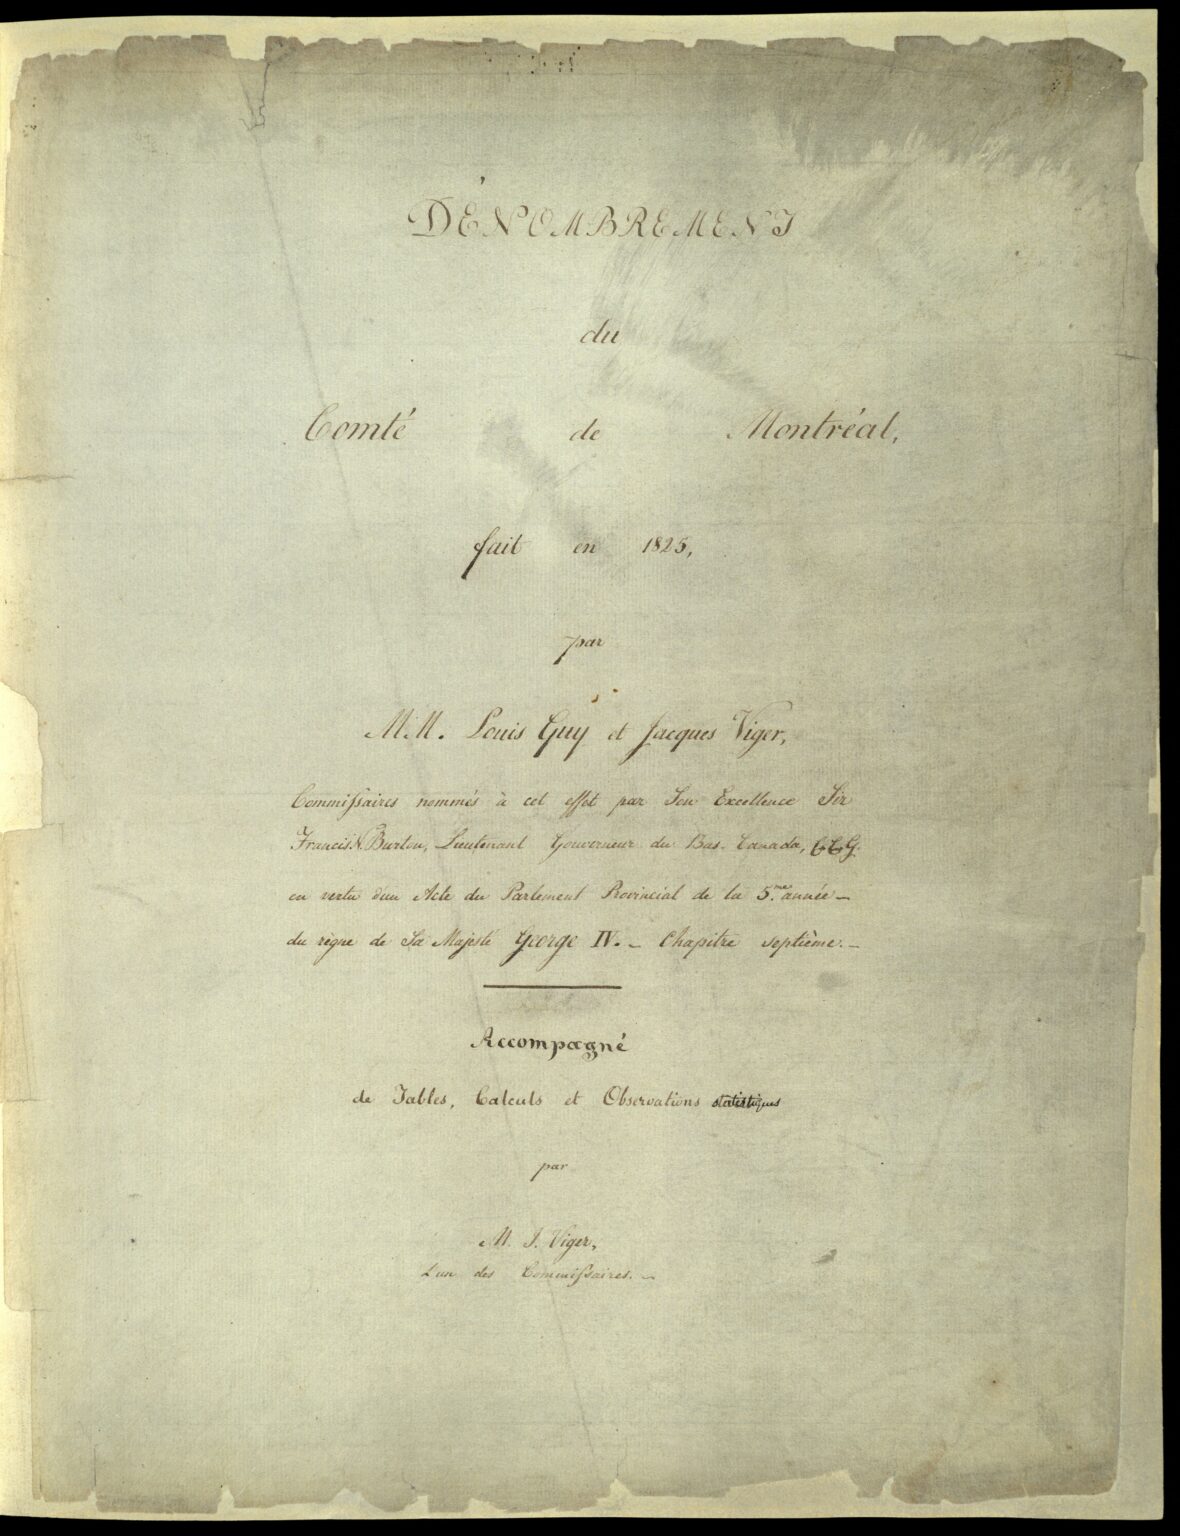 DÉNOMBREMENT
du
Comté de Montréal,
fait en 1825,
par
M.M. Louis Guy et Jacques Viger,
Commissaires nommés à cet effet par Son Excellence Sir
Francis N. Burton, Lieutenant Gouverneur du Bas-Canada,
en vertu d'un Acte du Parlement Provincial de la 5.me année —
du règne de Sa Majesté George IV. — Chapitre septième. —
Accompagné
de Tables, Calculs et Observations statistiques
par
M. J. Viger,
L'un des Commissaires. —